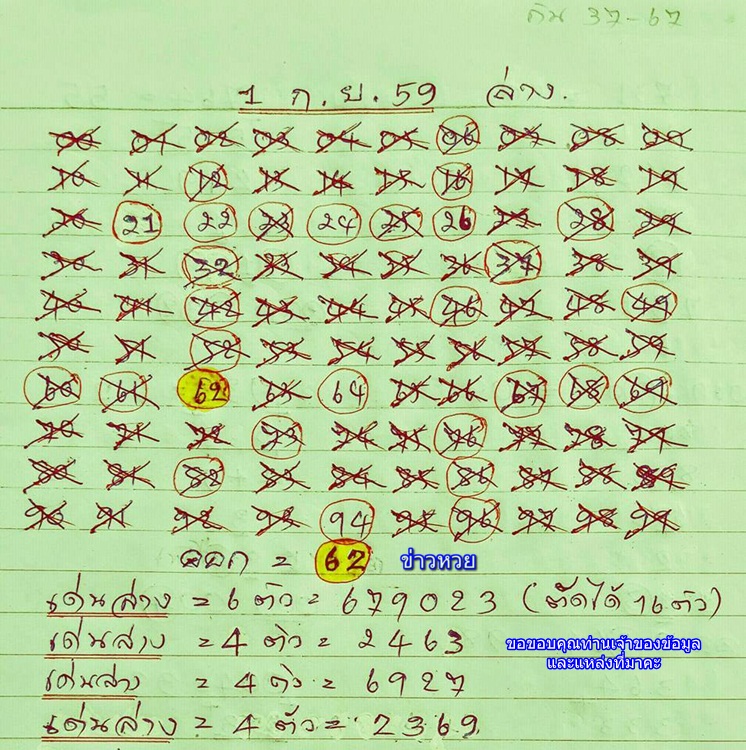 กัน 37-67
1 ก.ย.59 ล่าง.
00 01 02 03 04 05 06 07 08 09
10 11 12 13 14 15 16 17 18 19
20 21 22 23 24 25 26 27 28 29
30 31 32 33 34 35 36 37 38 39
40 41 42 43 44 45 46 47 48 49
50 51 52 53 54 55 56 57 58 59
60 61 62 63 64 65 66 67 68 69
70 71 72 73 74 75 76 77 78 79
80 81 82 83 84 85 86 87 88 89
90 91 92 93 94 95 96 97 98 99
ออก = 62 ข่าวหวย
เด่นล่าง = 6 ตัว = 679023 (ตัดได้ 16 ตัว)
เด่นล่าง = 4 ตัว = 2463
ขอขอบคุณท่านเจ้าของข้อมูล
และแหล่งที่มาคะ
เด่นล่าง = 4 ตัว = 6927
เด่นล่าง = 4 ตัว = 2369